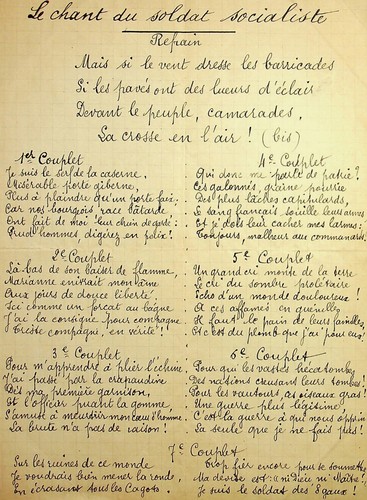 Le chant du soldat socialiste
Refrain
Mais si le vent dresse les barricades
Si les pavés ont des lueurs d'éclair
Devant le peuple, camarades,
La crosse en l'air ! (bis)
1er Couplet
Je suis le serf de la caserne,
Misérable porte giberne,
Plus à plaindre qu'un porte faix.
Car nos bourgeois race bâtarde,
Ont fait de moi leur chien de garde :
Prud'hommes, digérez en paix !
2e Couplet
Là-bas de son baiser de flamme,
Marianne enivrait mon âme
Aux jours de douce liberté.
Ici comme un forçat au bagne
J'ai la consigne pour compagne
Triste compagne, en vérité !
3e Couplet
Pour m'apprendre à plier l'échine
J'ai passé par la crapaudine
Dès ma première garnison.
Et l'officier puant la gomme,
S'amuse à meurtrir mon coeur d'homme
La brute n'a pas de raison !
4e Couplet
Qui donc me parle de patrie ?
Ces galonnés, graine pourrie
Des plus lâches capitulards,
Le sang français souille leurs armes
Et je dois leur cacher mes larmes :
Toujours, malheur aux
5e Couplet
Un grand cri monte de la terre
Le cri du sombre prolétaire
Écho d'un monde douloureux !
A ces affamés en guenilles
Il faut le pain de leurs familles
Et c'est du plomb que j'ai pour eux
6e Couplet
Pour qui les vastes hécatombes
Des nations creusant leurs tombes !
Pour les vautours, as oiseaux gras !
Une guerre plus légitime,
C'est la guerre à qui nous opprime
La seule que je ne fais pas !
7e Couplet
Sur les ruines de ce monde
Je voudrais bien mener la ronde,
En écrasant tous les Cagots.
Trop fier encore pour se soumettre
Ma devise est : "ni Dieu ni Maître",
Je suis le soldat des Égaux !